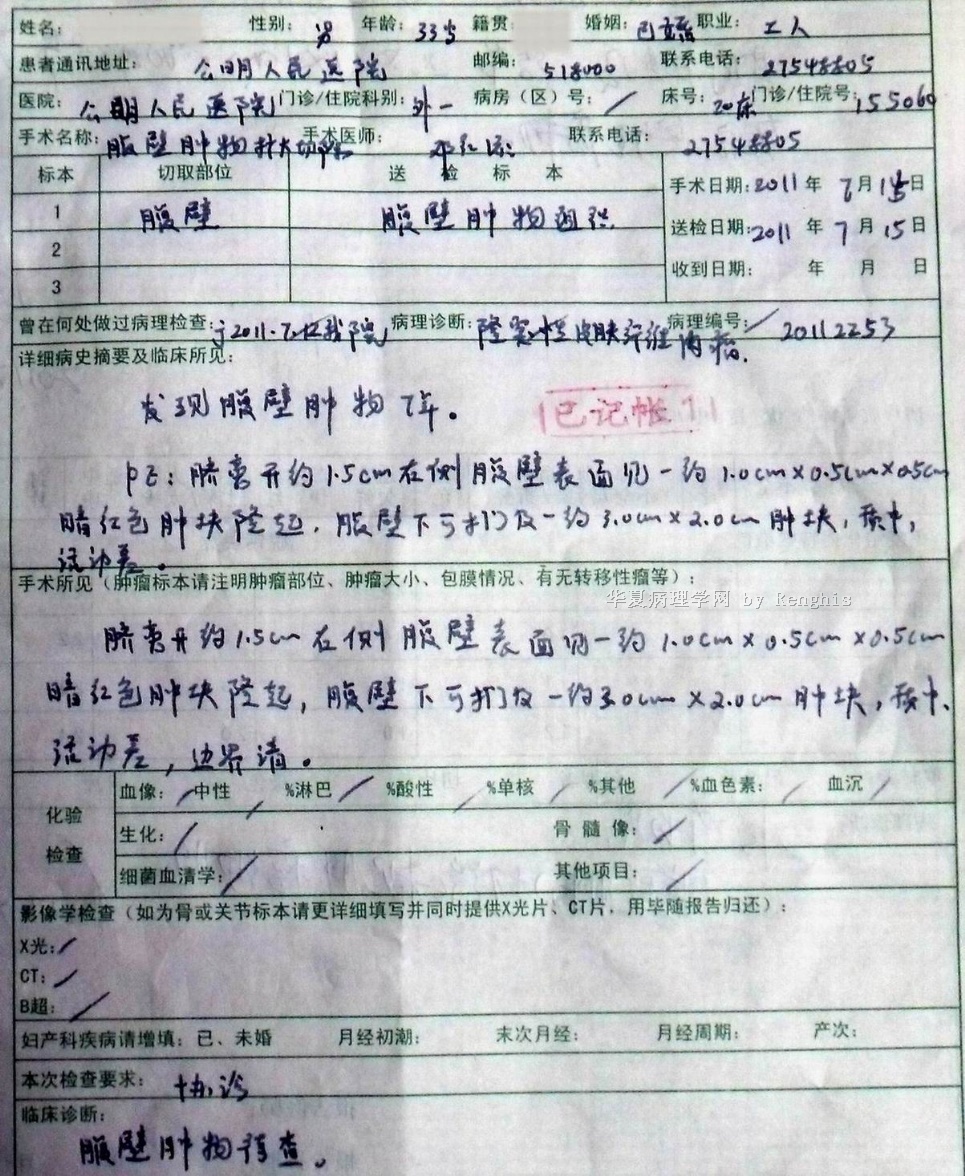 姓名: 性别: 男 年龄: 33岁 籍贯: 婚姻: 已婚 职业: 工人
患者通讯地址: 公明人民医院 邮编: 518000 联系电话:
医院: 公明人民医院 门诊/住院科别: 外一 病房(区)号: / 床号: 20床 门诊/住院号: 155060
手术名称: 腹壁肿物扩大切除 手术医师: 联系电话:
标本 切取部位 送检标本 手术日期: 2011年7月15日
1 腹壁 腹壁肿物组织 送检日期: 2011年7月15日
2 收到日期: 年 月 日
3
曾在何处做过病理检查: 于2011.7.在我院 病理诊断: 隆突性皮肤纤维肉瘤. 病理编号: / 20112253
详细病史摘要及临床所见:
发现腹壁肿物7年。 已记帐
PE: 脐旁开约1.5cm右侧腹壁表面见一约1.0cm×0.5cm×0.5cm
暗红色肿块隆起, 腹壁下可扪及一约3.0cm×2.0cm肿块, 质中,
活动差。
手术所见(肿瘤标本请注明肿瘤部位、肿瘤大小、包膜情况、有无转移性瘤等):
华夏病理学网 by Renghis
脐旁开约1.5cm右侧腹壁表面见一约1.0cm×0.5cm×0.5cm
暗红色肿块隆起, 腹壁下可扪及一约3.0cm×2.0cm肿块, 质中、
活动差, 边界清。
化验检查 血像: / 中性 / %淋巴 / %酸性 / %单核 / %其他 / %血色素: / 血沉 /
生化: / 骨髓像: /
细菌血清学: / 其他项目: /
影像学检查(如为骨或关节标本请更详细填写并同时提供X光片、CT片, 用毕随报告归还):
X光: /
CT: /
B超: /
妇产科疾病请增填: 已、未婚 月经初潮: 末次月经: 月经周期: 产次:
本次检查要求: 协诊
临床诊断:
腹壁肿物待查。